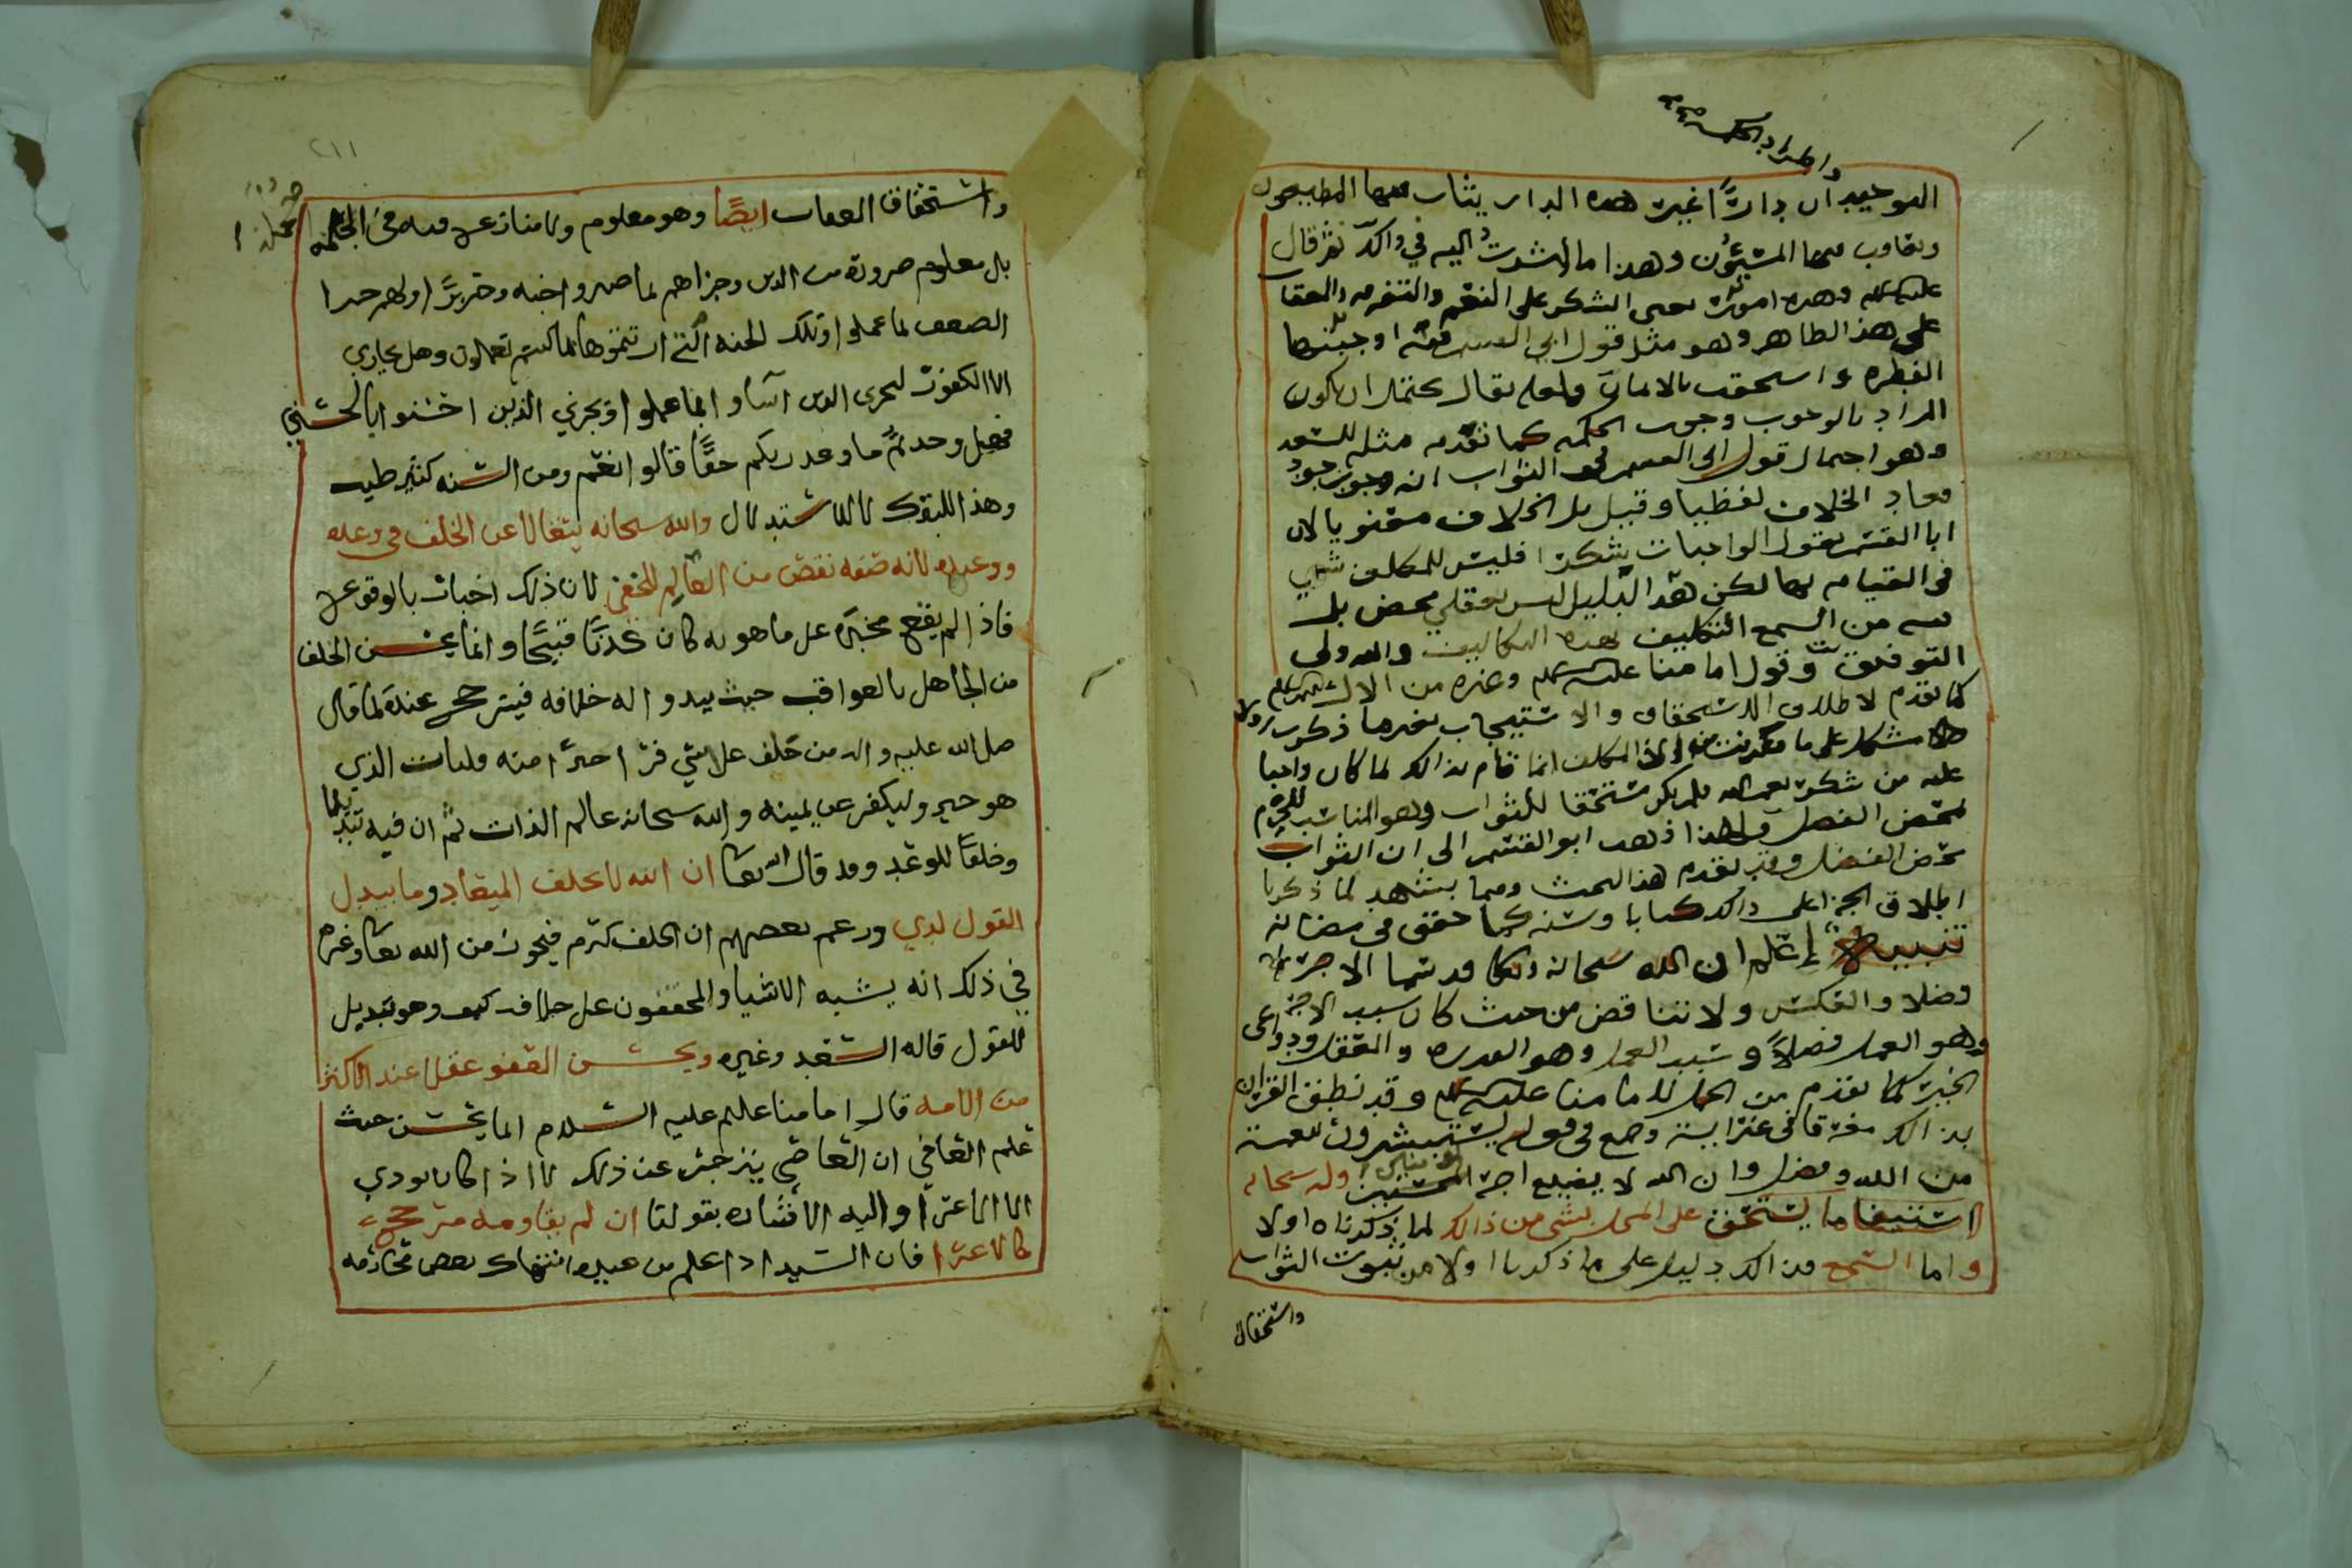 والمراد بالحكمة
التوحيد ان دارًا غير هذه الدار يثاب فيها المطيعون
ويعاقب فيها المسيئون وهذا ما اشرت اليه في ذاك ثم قال
عليه السلام وهذه امور يعني الشكر على النعم والعقاب
على هذا الظاهر وهو مثل قول ابي القسم اوجبتها
الفطره واستحقت بالايمان ولعله يقال يحتمل ان يكون
المراد بالوجوب وجوب الحكمه كما تقدم مثله للسعد
وهو احتمال قول ابي القسم في الثواب انه وجوب جود
فعاد الخلاف لفظيا وقيل بل الخلاف معنويا لان
ابا القسم يقول الواجبات شكرا فليس للمكلف شي
في القيام بها لكن هذا الدليل ليس بعقلي محض بل
فيه من السمع التكليف بهذه التكاليف والله ولي
التوفيق وقول امامنا عليه السلم وغيره من الال عليهم السلم
كما تقدم لاطلاق الاستحقاق والاستيجاب بغيرها ذكر
مشكل على ما المكلف انما قام بذالك لما كان واجبا
عليه من شكر نعم الله فلم يكن مستحقا للثواب وهو المناسب
لمحض الفضل ولهذا ذهب ابو القسم الى ان الثواب
محض الفضل وقد تقدم هذا البحث ومما يشهد لما ذكرنا
اطلاق الجزا على ذالك كتابا وسنه كما حقق في مضانه
تنبيه إعلم ان الله سبحانه وتعالى قد سما الاجر
فضلا والعكس ولا تناقض من حيث كان سبب الاجر
وهو العمل فضلاً وسبب العمل وهو القدره والعقل ودواعي
الخير كما تقدم من لامامنا عليه السلم وقد نطق القران
بذالك مفرقا في غير ايه وجمع في قوله يستبشرون بنعمة
من الله وفضل وان الله لا يضيع اجر المؤمنين وله سبحانه
استيفا ما يستحق على المخل بشي من ذالك لما ذكرناه اولا
واما السمع فذالك دليل على ما ذكرنا اولا من ثبوت الثواب
واستحقاق
٢١١
واستحقاق العقاب ايضًا وهو معلوم ولا منازع فيه في الجمله
بل معلوم ضرورة من الدين وجزاهم بما صبروا جنه وحريرًا اولهم جزا
الضعف بما عملوا وتلك الجنه التي اورثتموها بما كنتم تعملون وهل يجازى
الا الكفور ليجزي الذين آساوا بما عملوا ويجزي الذين احسنوا بالحسنى
فهل وجدتم ما وعد ربكم حقًّا قالوا نعم ومن السنه كثير طيب
وهذا للتبرك لا للاستدلال والله سبحانه يتعالا عن الخلف في وعده
ووعيده لانه صفه نقص من العالِم للخفي لان ذلك اخبار بالوقوع
فاذا لم يقع مخبَره على ما هو به كان كذبًا قبيحًا وانما يحسن الخلف
من الجاهل بالعواقب حيث يبدو له خلافه فيترجح عنده لما قال
صلى الله عليه واله من حلف على شي فراى خيرًا منه فليات الذي
هو خير وليكفر عن يمينه والله سبحانه عالم الذات ثم ان فيه تبديلا
وخلفًا للوعد وقد قال الله تعالى ان الله لا يخلف الميعاد وما يبدل
القول لدي وزعم بعضهم ان الخلف كرم فيجوز من الله تعالى وغيره
في ذلك انه يشبه الانشا والمحققون على خلافه كيف وهو تبديل
للقول قاله السعد وغيره ويحسن العفو عقلا عند الاكثر
من الامه قال امامنا عليه السلام انما يحسن حيث
علم العافي ان العاصي ينزجر عن ذلك لا اذا كان يودي
الى الاغرا واليه الاشاره بقولنا ان لم يقاومه مترجح
كالاغرا فان السيد اذا علم من عبده انتهاك بعض محارمه